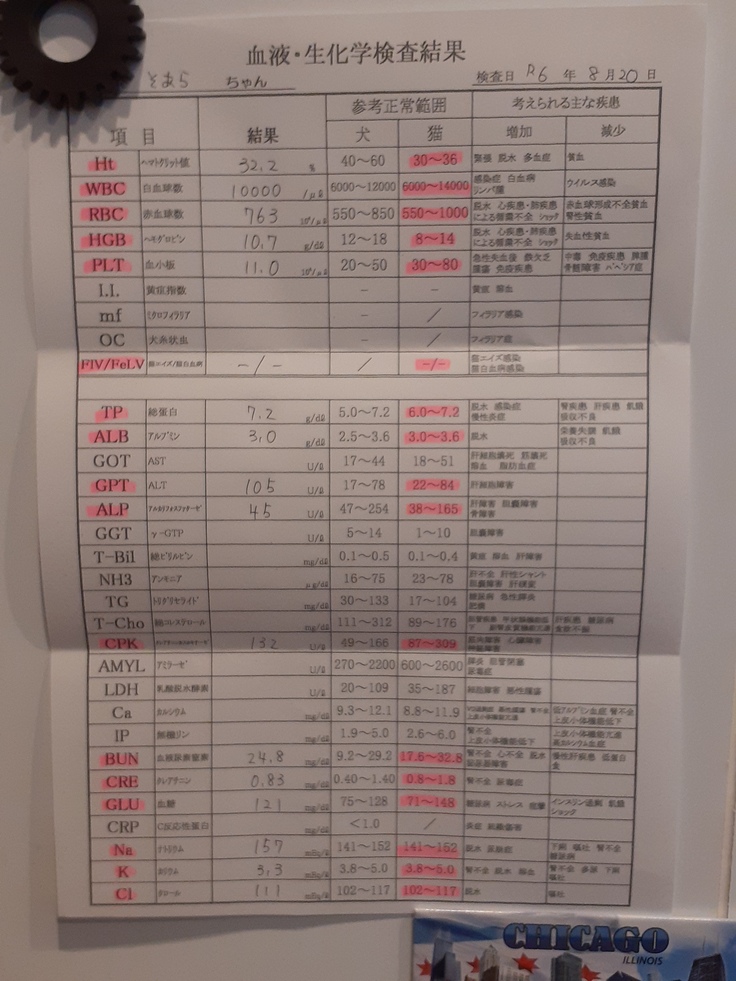 血液・生化学検査結果
そあら ちゃん 検査日 R6 年 8 月 20 日
項目 結果 参考正常範囲 考えられる主な疾患
犬 猫 増加 減少
Ht ヘマトクリット値 32.2 % 40～60 30～36 緊張 脱水 多血症 貧血
WBC 白血球数 10000 /μℓ 6000～12000 6000～14000 感染症 白血病 リンパ腫 ウイルス感染
RBC 赤血球数 763 10⁴/μℓ 550～850 550～1000 脱水 心疾患・肺疾患による循環不全 ショック 赤血球形成不全貧血 腎性貧血
HGB ヘモグロビン 10.7 g/dℓ 12～18 8～14 脱水 心疾患・肺疾患による循環不全 ショック 失血性貧血
PLT 血小板 11.0 10⁴/μℓ 20～50 30～80 急性失血後 鉄欠乏 腫瘍 免疫疾患 中毒 免疫疾患 脾腫 骨髄障害 バベシア症
I.I. 黄疸指数 － － 黄疸 溶血
mf ミクロフィラリア － ／ フィラリア感染
OC 犬糸状虫 － ／ フィラリア症
FIV/FeLV 猫エイズ/猫白血病 －/－ ／ －/－ 猫エイズ感染 猫白血病感染
TP 総蛋白 7.2 g/dℓ 5.0～7.2 6.0～7.2 脱水 感染症 慢性炎症 腎疾患 肝疾患 飢餓 吸収不良
ALB アルブミン 3.0 g/dℓ 2.5～3.6 3.0～3.6 脱水 栄養失調 飢餓 吸収不良
GOT AST U/ℓ 17～44 18～51 肝細胞壊死 筋壊死 溶血 脂肪血症
GPT ALT 105 U/ℓ 17～78 22～84 肝細胞障害
ALP アルカリフォスファターゼ 45 U/ℓ 47～254 38～165 肝障害 胆嚢障害 骨障害
GGT γ-GTP U/ℓ 5～14 1～10 胆嚢障害
T-Bil 総ビリルビン mg/dℓ 0.1～0.5 0.1～0.4 黄疸 溶血 肝障害
NH3 アンモニア μg/dℓ 16～75 23～78 肝不全 肝性シャント 胆嚢障害 肝硬変
TG トリグリセライド mg/dℓ 30～133 17～104 糖尿病 急性膵炎 肥満
T-Cho 総コレステロール mg/dℓ 111～312 89～176 肝疾患 糖尿病 食欲不振
CPK 132 U/ℓ 49～166 87～309 筋肉障害 心臓障害
AMYL アミラーゼ U/ℓ 270～2200 600～2600 膵炎 腸管閉塞 尿毒症
LDH 乳酸脱水酵素 U/ℓ 20～109 35～187 細胞障害 悪性腫瘍
Ca カルシウム mg/dℓ 9.3～12.1 8.8～11.9 低アルブミン血症 腎不全 上皮小体機能低下
IP 無機リン mg/dℓ 1.9～5.0 2.6～6.0 腎不全 上皮小体機能低下 上皮小体機能亢進 高カルシウム血症
BUN 血液尿素窒素 24.8 mg/dℓ 9.2～29.2 17.6～32.8 腎不全 心不全 脱水 泌尿器障害 慢性肝疾患 低蛋白食
CRE クレアチニン 0.83 mg/dℓ 0.40～1.40 0.8～1.8 腎不全 尿毒症
GLU 血糖 121 mg/dℓ 75～128 71～148 糖尿病 ストレス 痙攣 インスリン過剰 飢餓 ショック
CRP C反応性蛋白 mg/dℓ <1.0 ／ 炎症 組織傷害
Na ナトリウム 157 mEq/ℓ 141～152 141～152 脱水 尿崩症 下痢 嘔吐 腎不全 糖尿病
K カリウム 3.3 mEq/ℓ 3.8～5.0 3.8～5.0 腎不全 脱水 溶血 腎不全 多尿 下痢 嘔吐
Cl クロール 111 mEq/ℓ 102～117 102～117 脱水 嘔吐
CHICAGO
ILLINOIS